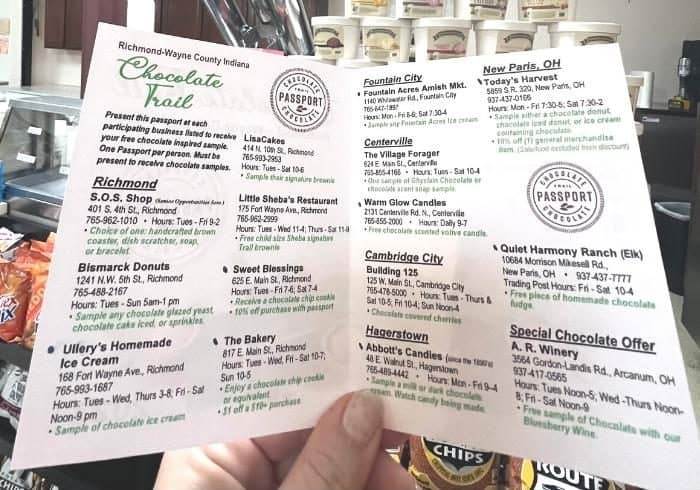 Richmond-Wayne County Indiana
Chocolate
Trail
CHOCOLATE
TRAIL
PASSPORT
CHOCOLATE
Present this passport at each
participating business listed to receive
your free chocolate inspired sample.
One Passport per person. Must be
present to receive chocolate samples.
Richmond
S.O.S. Shop (Senior Opportunities Serv.)
401 S. 4th St., Richmond
765-962-1010 • Hours: Tues - Fri 9-2
• Choice of one: handcrafted brown
coaster, dish scratcher, soap,
or bracelet.
Bismarck Donuts
1241 N.W. 5th St., Richmond
765-488-2167
Hours: Tues - Sun 5am-1 pm
• Sample any chocolate glazed yeast,
chocolate cake iced, or sprinkles.
Ullery's Homemade
Ice Cream
168 Fort Wayne Ave., Richmond
765-993-1687
Hours: Tues - Wed, Thurs 3-8; Fri - Sat
Noon-9 pm
• Sample of chocolate ice cream
LisaCakes
414 N. 10th St., Richmond
765-993-2953
Hours: Tues - Sat 10-6
• Sample their signature brownie
Little Sheba's Restaurant
175 Fort Wayne Ave., Richmond
765-962-2999
Hours: Tues - Wed 11-4; Thurs - Sat 11-9
• Free child size Sheba signature
Trail brownie
Sweet Blessings
625 E. Main St., Richmond
Hours: Tues - Fri 7-6; Sat 7-4
• Receive a chocolate chip cookie
• 10% off purchase with passport
The Bakery
817 E. Main St., Richmond
Hours: Tues - Wed, Fri - Sat 10-7;
Sun 10-5
• Enjoy a chocolate chip cookie
or equivalent
• $1 off a $10+ purchase
Fountain City
Fountain Acres Amish Mkt.
1140 Whitewater Rd., Fountain City
765-847-1897
Hours: Mon - Fri 8-6; Sat 7:30-4
• Sample any Fountain Acres ice cream
Centerville
The Village Forager
624 E. Main St., Centerville
765-855-4166 • Hours: Tues - Sat 10-4
• One sample of Ghyslain Chocolate or
chocolate scent soap sample.
Warm Glow Candles
2131 Centerville Rd. N., Centerville
765-855-2000 • Hours: Daily 9-7
• Free chocolate scented votive candle.
Cambridge City
Building 125
125 W. Main St., Cambridge City
765-478-5000 • Hours: Tues - Thurs &
Sat 10-5; Fri 10-4; Sun Noon-4
• Chocolate covered cherries
Hagerstown
Abbott's Candies (since the 1890's)
48 E. Walnut St., Hagerstown
765-489-4442 • Hours: Mon - Fri 9-4
• Sample a milk or dark chocolate
cream. Watch candy being made.
New Paris, OH
Today's Harvest
5859 S.R. 320, New Paris, OH
937-437-0165
Hours: Mon - Fri 7:30-5; Sat 7:30-2
• Sample either a chocolate donut,
chocolate iced donut, or ice cream
containing chocolate.
• 10% off (1) general merchandise
item.
CHOCOLATE
TRAIL
PASSPORT
CHOCOLATE
Quiet Harmony Ranch (Elk)
10684 Morrison Mikesell Rd.,
New Paris, OH • 937-437-7777
Trading Post Hours: Fri - Sat 10-4
• Free piece of homemade chocolate
fudge.
Special Chocolate Offer
A. R. Winery
3564 Gordon-Landis Rd., Arcanum, OH
937-417-0565
Hours: Tues Noon-5; Wed -Thurs Noon-
8; Fri - Sat Noon-9
• Free sample of Chocolate with our
Bluesberry Wine.
CHIPS
ROUTE